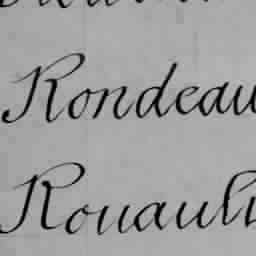 Rondeau
Rouaul